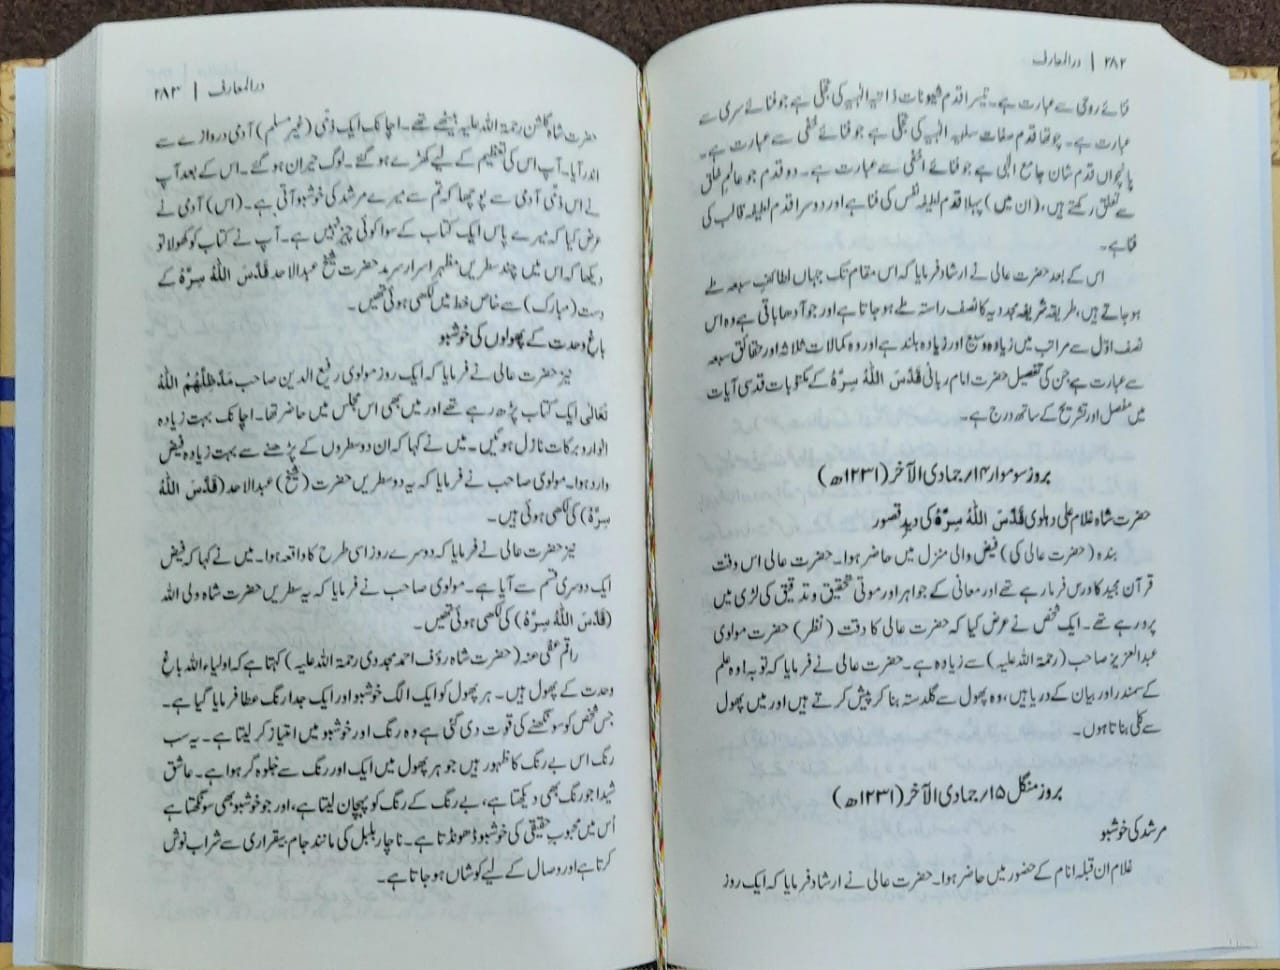 ۲۸۲ | درالمعارف
فنائے روحی سے عبارت ہے۔ تیسرا قدم شیونات ذاتیہ الٰہیہ کی تجلی ہے جو فنائے سری سے
عبارت ہے۔ چوتھا قدم صفات سلبیہ الٰہیہ کی تجلی ہے جو فنائے خفی سے عبارت ہے۔
پانچواں قدم شان جامع الٰہی ہے جو فنائے اخفٰی سے عبارت ہے۔ دو قدم جو عالم خلق
سے تعلق رکھتے ہیں، (ان میں) پہلا قدم لطیفہ نفس کی فنا ہے اور دوسرا قدم لطیفہ قالب کی
فنا ہے۔
اس کے بعد حضرت عالی نے ارشاد فرمایا کہ اس مقام تک جہاں لطائف سبعہ طے
ہو جاتے ہیں، طریقہ شریفہ مجددیہ کا نصف راستہ طے ہو جاتا ہے اور جو آدھا باقی ہے وہ اس
نصف اوّل سے مراتب میں زیادہ وسیع اور زیادہ بلند ہے اور وہ کمالات ثلاثہ اور حقائق سبعہ
سے عبارت ہے جن کی تفصیل حضرت امام ربانی قَدَّسَ اللّٰهُ سِرَّهٗ کے مکتوبات قدسی آیات
میں مفصل اور تشریح کے ساتھ درج ہے۔
بروز سوموار ۱۴/جمادی الآخر (۱۲۳۱ھ)
حضرت شاہ غلام علی دہلوی قَدَّسَ اللّٰهُ سِرَّهٗ کی دیدِ قصور
بندہ (حضرت عالی کی) فیض والی منزل میں حاضر ہوا۔ حضرت عالی اس وقت
قرآن مجید کا درس فرما رہے تھے اور معانی کے جواہر اور موتی تحقیق و تدقیق کی لڑی میں
پرو رہے تھے۔ ایک شخص نے عرض کیا کہ حضرت عالی کا دقت (نظر) حضرت مولوی
عبدالعزیز صاحب (رحمۃ اللہ علیہ) سے زیادہ ہے۔ حضرت عالی نے فرمایا کہ توبہ! وہ علم
کے سمندر اور بیان کے دریا ہیں، وہ پھول سے گلدستہ بنا کر پیش کرتے ہیں اور میں پھول
سے کلی بناتا ہوں۔
بروز منگل ۱۵/جمادی الآخر (۱۲۳۱ھ)
مرشد کی خوشبو
غلام ان قبلہ انام کے حضور میں حاضر ہوا۔ حضرت عالی نے ارشاد فرمایا کہ ایک روز
درالمعارف | ۲۸۳
حضرت شاہ گلشن رحمۃ اللہ علیہ بیٹھے تھے۔ اچانک ایک ذمّی (غیر مسلم) آدمی دروازے سے
اندر آیا۔ آپ اس کی تعظیم کے لیے کھڑے ہو گئے۔ لوگ حیران ہو گئے۔ اس کے بعد آپ
نے اس ذمّی آدمی سے پوچھا کہ تم سے میرے مرشد کی خوشبو آتی ہے۔ (اس) آدمی نے
عرض کیا کہ میرے پاس ایک کتاب کے سوا کوئی چیز نہیں ہے۔ آپ نے کتاب کو کھولا تو
دیکھا کہ اس میں چند سطریں مظہر اسرار سرمد حضرت شیخ عبدالاحد قَدَّسَ اللّٰهُ سِرَّهٗ کے
دست (مبارک) سے خاص خط میں لکھی ہوئی تھیں۔
باغ وحدت کے پھولوں کی خوشبو
نیز حضرت عالی نے فرمایا کہ ایک روز مولوی رفیع الدین صاحب مَدَّ ظِلَّهُمُ اللّٰهُ
تَعَالٰی ایک کتاب پڑھ رہے تھے اور میں بھی اس مجلس میں حاضر تھا۔ اچانک بہت زیادہ
انوار و برکات نازل ہوئیں۔ میں نے کہا کہ ان دو سطروں کے پڑھنے سے بہت زیادہ فیض
وارد ہوا۔ مولوی صاحب نے فرمایا کہ یہ دو سطریں حضرت (شیخ) عبدالاحد (قَدَّسَ اللّٰهُ
سِرَّهٗ) کی لکھی ہوئی ہیں۔
نیز حضرت عالی نے فرمایا کہ دوسرے روز اسی طرح کا واقعہ ہوا۔ میں نے کہا کہ فیض
ایک دوسری قسم سے آیا ہے۔ مولوی صاحب نے فرمایا کہ یہ سطریں حضرت شاہ ولی اللہ
(قَدَّسَ اللّٰهُ سِرَّهٗ) کی لکھی ہوئی تھیں۔
راقم عفی عنہ (حضرت شاہ رؤف احمد مجددی رحمۃ اللہ علیہ) کہتا ہے کہ اولیاء اللہ باغ
وحدت کے پھول ہیں۔ ہر پھول کو ایک الگ خوشبو اور ایک جدا رنگ عطا فرمایا گیا ہے۔
جس شخص کو سونگھنے کی قوت دی گئی ہے وہ رنگ اور خوشبو میں امتیاز کر لیتا ہے۔ یہ سب
رنگ اس بے رنگ کا ظہور ہیں جو ہر پھول میں ایک اور رنگ سے جلوہ گر ہوا ہے۔ عاشق
شیدا جو رنگ بھی دیکھتا ہے، بے رنگ کے رنگ کو پہچان لیتا ہے، اور جو خوشبو بھی سونگھتا ہے
اُس میں محبوب حقیقی کی خوشبو ڈھونڈتا ہے۔ ناچار بلبل کی مانند جام بیقراری سے شراب نوش
کرتا ہے اور وصال کے لیے کوشاں ہو جاتا ہے۔